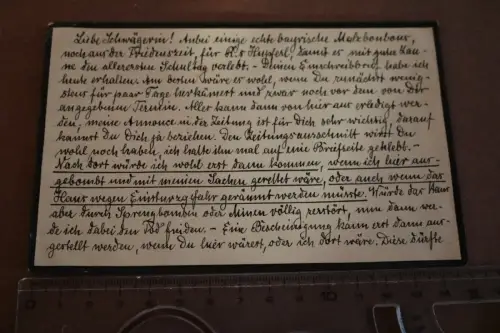 Liebe Schwägerin! Anbei einige echte bayrische Malzbonbons,
noch aus der Friedenszeit, für Kl. Hupferl, damit es mit guter Lau-
ne den allerersten Schultag verlebt. - Deinen Einschreibbrief habe ich
heute erhalten. Am besten wäre es wohl, wenn Du zunächst wenig-
stens für paar Tage herkämest und zwar noch vor dem von Dir
angegebenen Termin. Alles kann dann von hier aus erledigt wer-
den, meine Annonce in der Zeitung ist für Dich sehr wichtig, darauf
kannst Du Dich ja beziehen. Den Zeitungsausschnitt wirst Du
wohl noch haben, ich hatte ihn mal auf eine Briefseite geklebt. -
Nach dort würde ich wohl erst dann kommen, wenn ich hier aus-
gebombt und mit meinen Sachen gerettet wäre, oder auch wenn das
Haus wegen Einsturzgefahr geräumt werden müsste. Würde das Haus
aber durch Sprengbomben oder Minen völlig zerstört, nun dann wer-
de ich dabei den Tod finden. - Eine Bescheinigung kann erst dann aus-
gestellt werden, wenn Du hier wärest, oder ich dort wäre. Diese dürfte